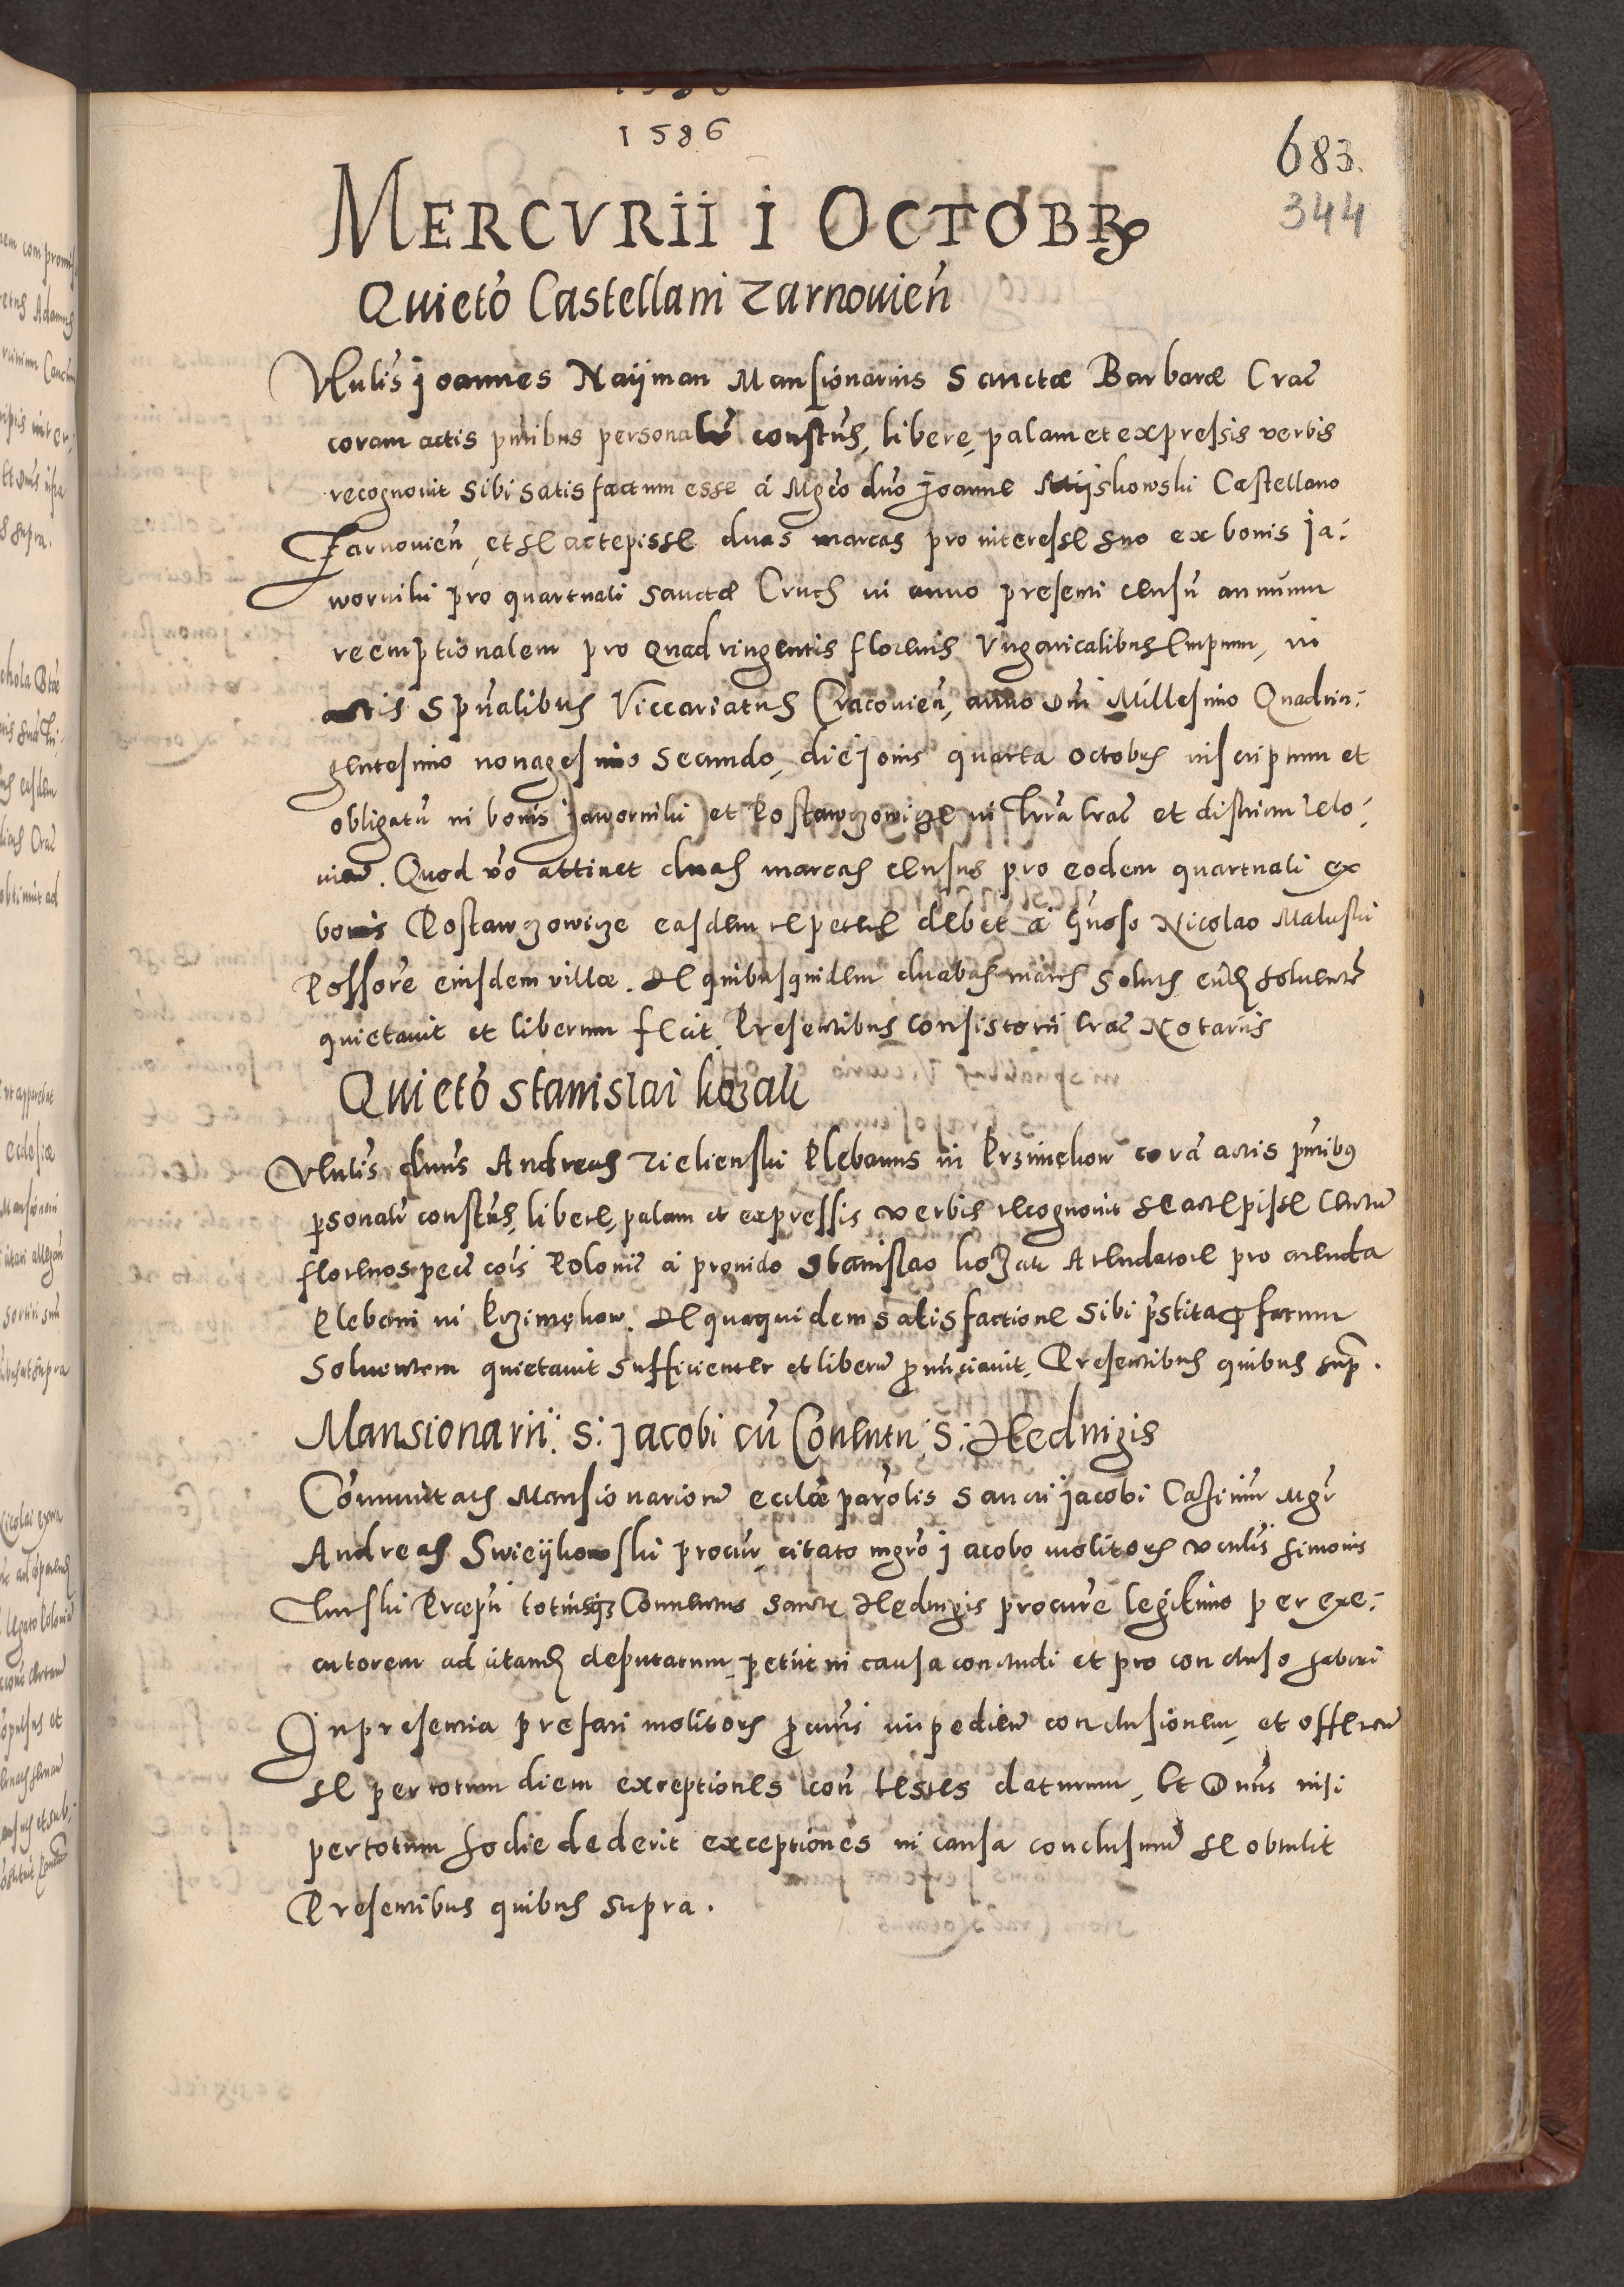 1586
683.
344
MERCVRII I OCTOBR
Quieto Castellani Zarnouien
Vlulis Joannes Naijman Mansionarius Sanctæ Barbaræ Crac
coram actis pntibus personalr constus, libere, palam et expressis verbis
recognouit sibi satisfactum esse á Mgco dno Joanne Mijskowski Castellano
Zarnouien, et se accepisse duas marcas pro interesse suo ex bonis Ja:
wornikj pro quartuali Sanctæ Crucis in anno presenti censu annuum
reemptionalem pro Quadringentis florenis Vngaricalibus emptum, in
actis Spualibus Viccariatus Cracouien, anno dni Millesimo Quadrin:
gentesimo nonagesimo secundo, die Jouis quarta Octobris inscriptum et
obligatu in bonis Jawornikj et Rostawzowize in trra Crac et districtu lelo:
uien. Quod vo attinet duas marcas census pro eodem quartuali ex
bonis Rostawzowize easdem repetere debet á Gnoso Nicolao Maluski
Possore eiusdem villæ. De quibusquidem duabus marcis solutis eund soluente
quietauit et liberum fecit. Presentibus Consistorii Crac Notariis
Quieto Stanislai kozak
Vlulis dnus Andreas Zielienski Plebanus in Przimękow corã actis pntibus
psonalr constus, libere, palam et expressis verbis recognouit se accepisse Centum
florenos pecu cois Poloniæ á prouido Stanislao kozak Arendatore pro arenda
Plebani in Przimękow. De quaquidem satisfactione sibi pstita pfatum
Soluentem quietauit sufficienter et liberu pnunciauit, Presentibus quibus sup.
Mansionarii S: Jacobi cu Conuentu S: Hedwigis
Comunitatis Mansionarioru ecclæ parolis Sancti Jacobi Casimir Mgr
Andreas Swieykowski procur, citato mgro Jacobo molitoris venlis Simonis
 totiusq Conuentus Sanctæ Hedwigis procure legitimo per exe:
cutorem ad citand deputatum, petiit in causa concludi et pro concluso haberi
In presentia prefati molitoris pcuris impedien conclusionem, et offeren
se per totum diem exceptiones con testes daturum, Et Dnus nisi
per totum hodie dederit exceptiones in causa conclusurum se obtulit
Presentibus quibus supra.